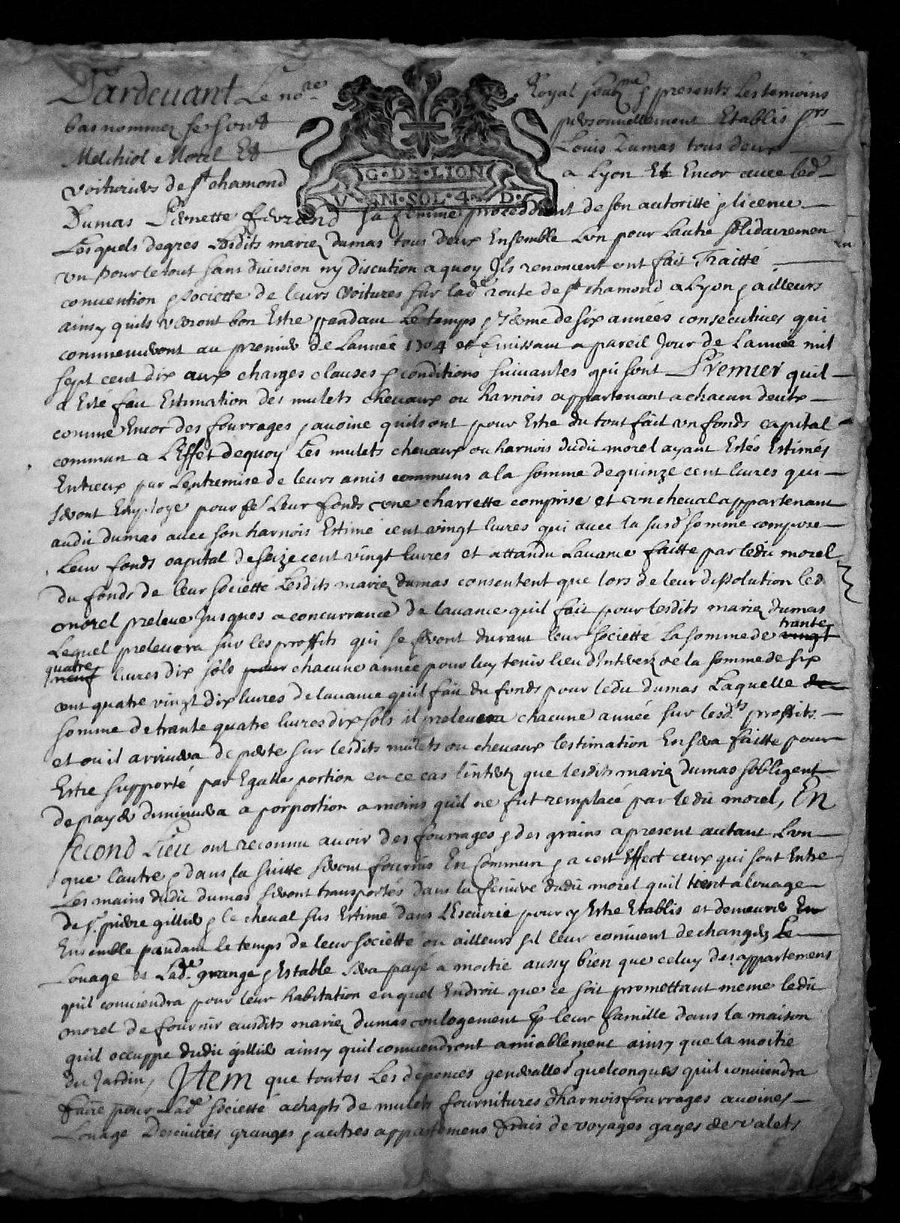 Pardevant Le no.re Royal sous.ne & presents Les temoins
bas nommez se sont personnellement Establis srs
Melchiol Morel Et Louis Dumas tous deux
G. DE LION
VN SOL 4 D.
voituriers de s.t chamond a Lyon Et Encor avec led.
Dumas Pernette sa femme procedant de son autoritté & licence
Lesquels degres Lesdits mariez dumas tous deux Ensemble Lun pour Lautre solidairemen
un pour le tout sans division ny discution a quoy Ils renoncent ont fait Traitté
convention & societté de leurs voitures sur lad.e route de s.t chamond a Lyon & ailleurs
ainsy quils verront bon Estre pendant Le temps & terme de six années consecutives qui
commenceront au premier de Lannée 1704 et finissant a pareil Jour de Lannée mil
sept cent dix aux charges clauses & conditions suivantes qui sont Premier quil
a Esté fait Estimation des mulets chevaux ou harnois appartenant a chacun deux
comme Encor des fourrages & avoine quils ont pour Estre du tout fait un fonds capital
commun a L'Effet dequoy Les mulets chevaux ou harnois dudit morel ayant Estés Estimés
Entreux par Lentremise de leurs amis communs a la somme de quinze cent livres qui
seront Employé pour Leur fonds une charrette comprise et un cheval appartenant
audit dumas avec son harnois Estimé cent vingt livres qui avec la susd. somme compose
Leur fonds capital de seize cent vingt livres et attandu Lavance faitte par ledit morel
du fonds de leur societté Lesdits mariez dumas consentent que lors de leur dissolution led.
morel preleve Jusques a concurrance de lavance quil fait pour lesdits mariez dumas
Lequel prelevera sur les proffits qui se feront durant leur societté La somme de vingt trante
neuf quatre livres dix sols pour chacune année pour luy tenir lieu d'Interez de la somme de six
cent quatre vingt dix livres de lavance quil fait du fonds pour ledit dumas Laquelle
somme de trante quatre livres dix sols il prelevera chacune année sur lesd.ts proffits
et ou il arrivera de perte sur lesdits mulets ou chevaux lestimation En sera faitte pour
Estre supporté par Egalle portion en ce cas linterez que lesdits mariez dumas sobligent
de payer diminuera a porportion a moins quil ne fut remplacé par ledit morel, En
second Lieu ont reconnu avoir des fourrages & des grains a present autant Lun
que lautre & dans la suitte seront fournis En commun & a cest Effect ceux qui sont Entre
Les mains dudit dumas seront transportés dans la feniere dudit morel quil tient a louage
de s.r pierre gillier & le cheval sus Estimé dans L'Escuirie pour y Estre Establis et demeurer En
Ensemble pandant le temps de leur societté ou ailleurs sil leur convient de changer Le
Louage de Lad.e grange & Estable sera payé a moitié aussy bien que celuy des appartemens
quil conviendra pour leur habitation en quel Endroit que ce soit promettant meme ledit
morel de fournir ausdits mariez dumas son logement & leur famille dans la maison
quil occuppe dudit gillier ainsy quil conviendront amiablement ainsy que la moitié
du Jardin, Item que toutes Les depences generalled quelconques quil conviendra
faire pour Lad.e societté achapts de mulets fournitures d'harnois fourrages avoines
Louage Descuiries granges & autres appartemens frais de voyages gages de valets